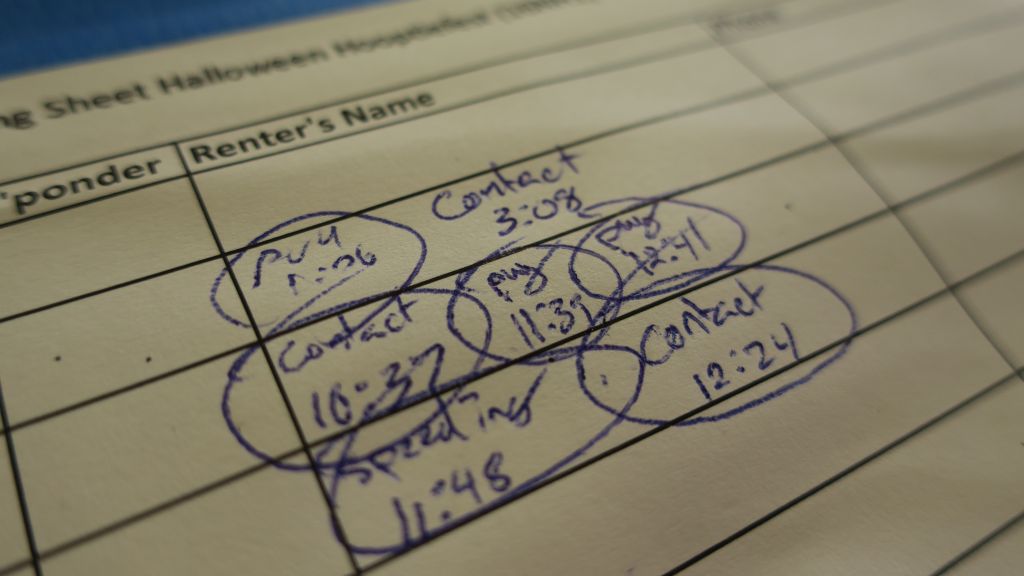 Sheet Halloween Hoopfest
'ponder Renter's Name
Contact
3:08
puy
12:41
puy
11:35
Contact
10:37
Contact
12:24
Speeding
11:48